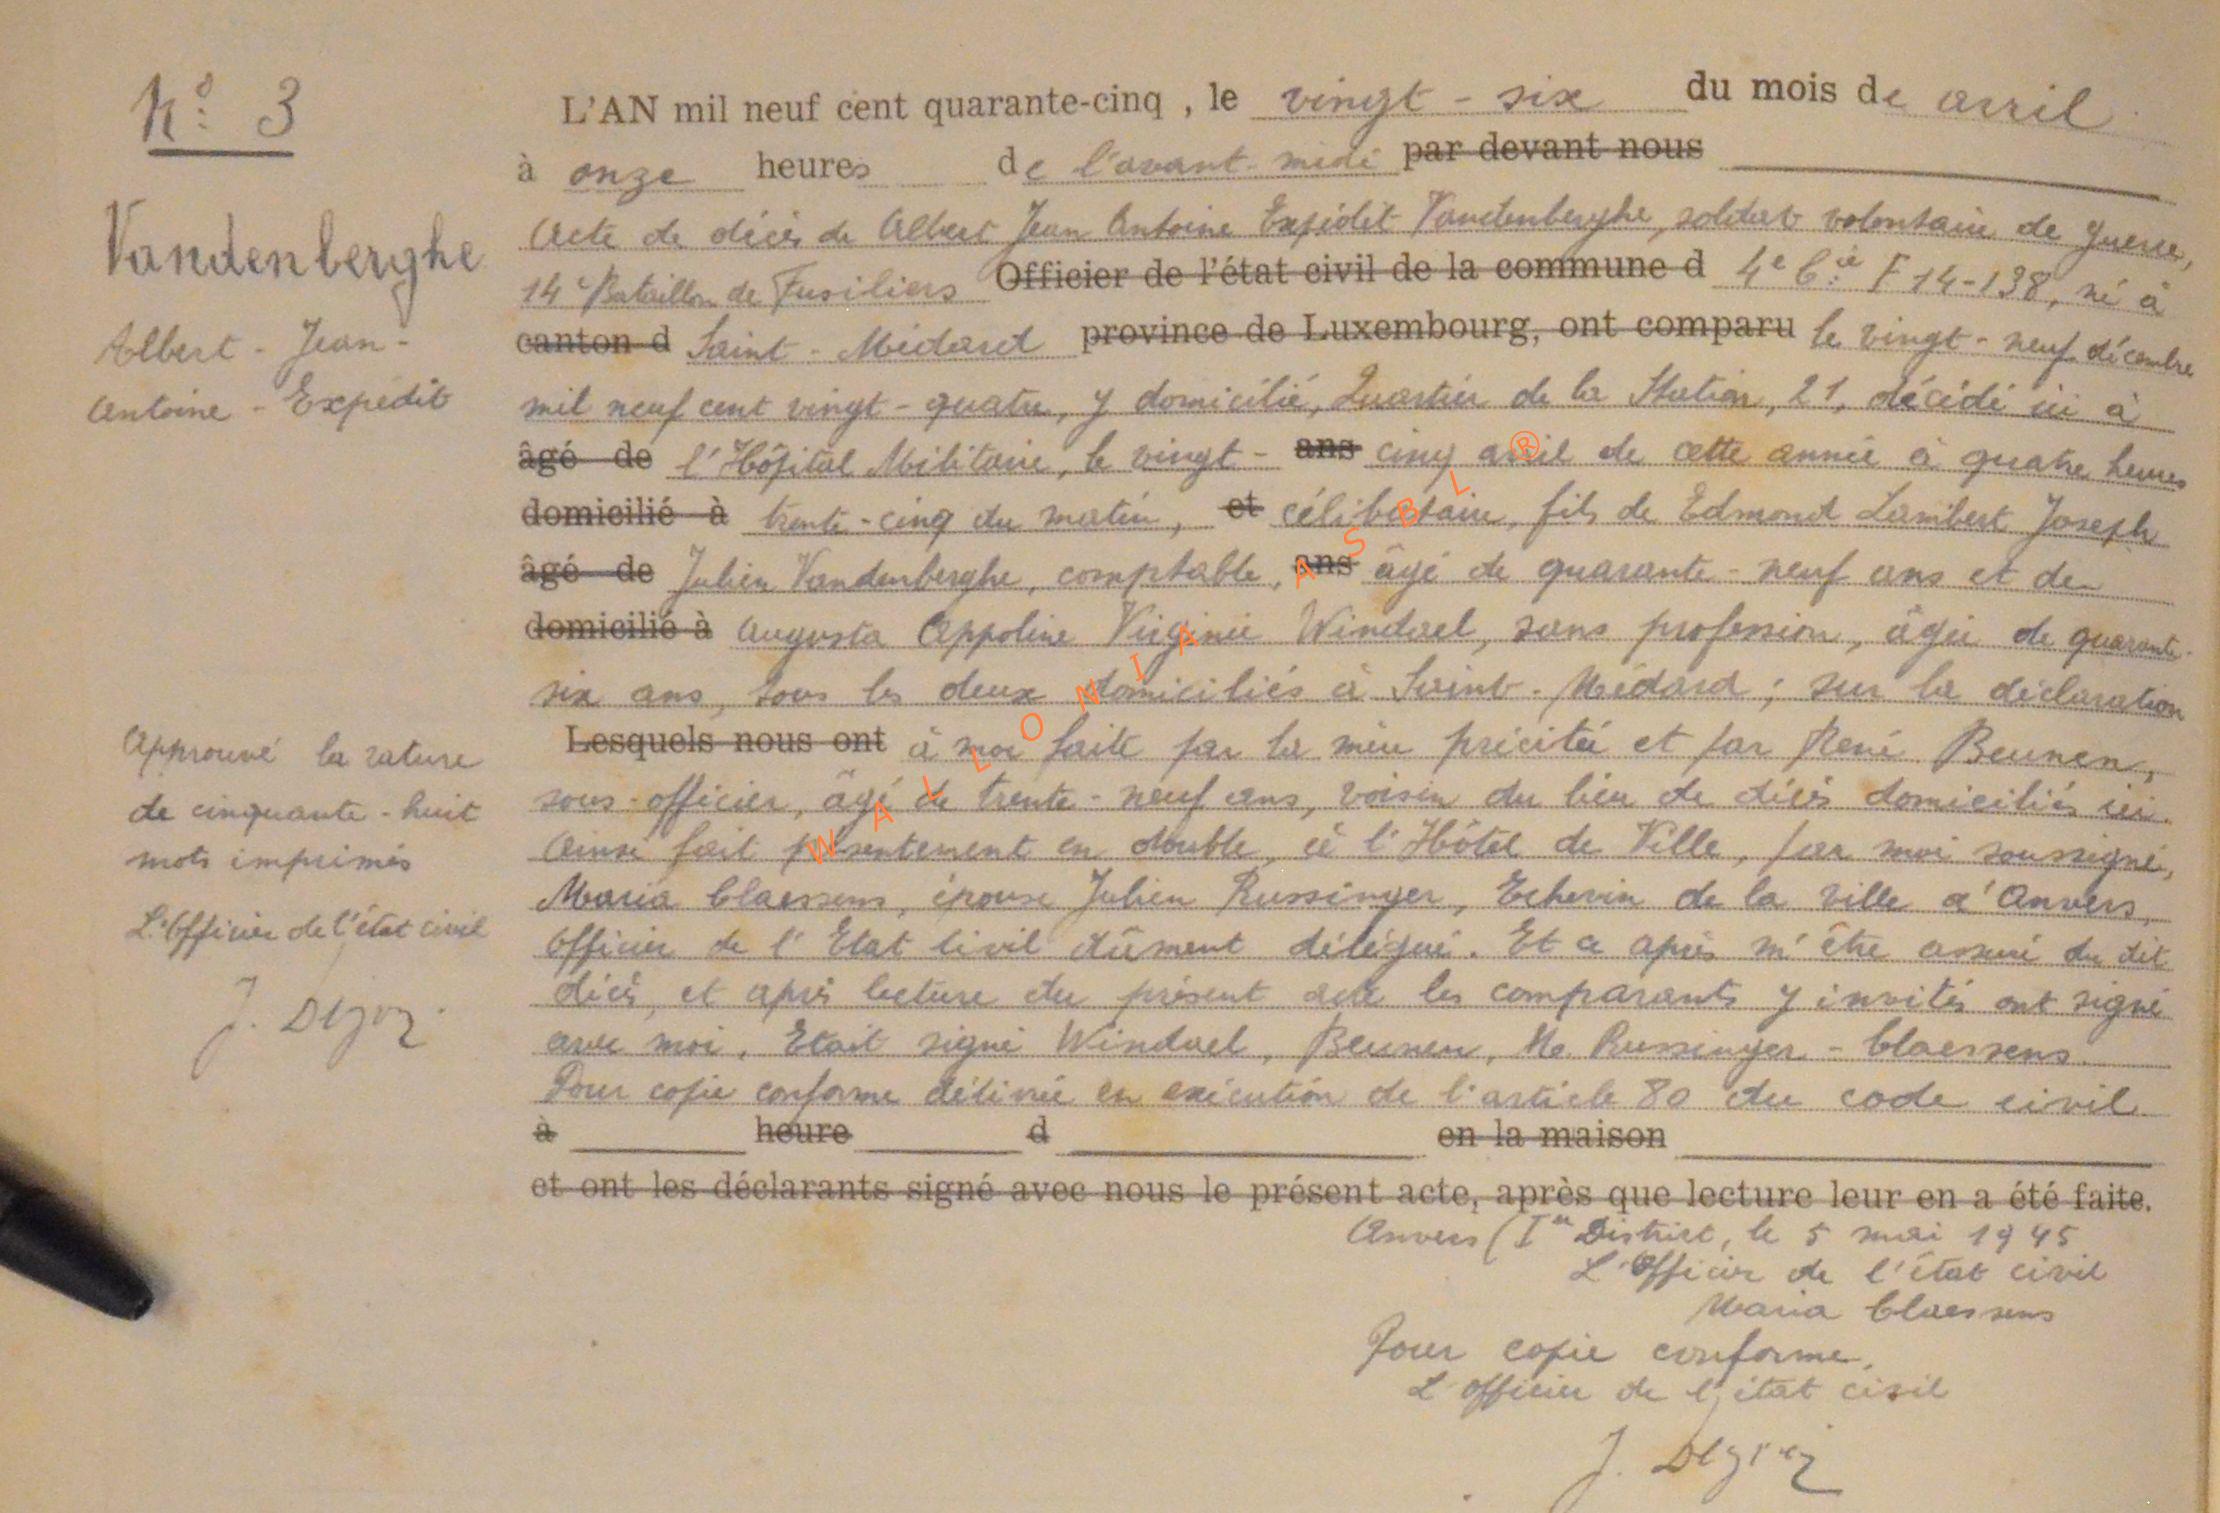 N° 3
Vandenberghe
Albert - Jean -
Antoine - Expédit
L'AN mil neuf cent quarante-cinq , le vingt - six du mois de avril
à onze heures de l'avant-midi par devant nous
Acte de décès de Albert Jean Antoine Expédit Vandenberghe, soldat volontaire de guerre,
14e Bataillon de Fusiliers Officier de l'état civil de la commune d 4e Cie F 14-138, né à
canton d Saint - Médard province de Luxembourg, ont comparu le vingt - neuf décembre
mil neuf cent vingt - quatre, y domicilié, Quartier de la Station, 21, décédé ici à
âgé de l'Hôpital Militaire, le vingt - ans cinq avril de cette année à quatre heures
domicilié à trente - cinq du matin, et célibataire, fils de Edmond Lambert Joseph
âgé de Julien Vandenberghe, comptable, ans âgé de quarante - neuf ans et de
domicilié à Augusta Appoline Virginie Windael, sans profession, âgée de quarante-
six ans, tous les deux domiciliés à Saint - Médard ; sur la déclaration
Lesquels nous ont à moi faite par la mère précitée et par René Beunen,
sous-officier, âgé de trente - neuf ans, voisin du lieu de décès domiciliés ici.
Ainsi fait présentement en double, à l'Hôtel de Ville, par moi soussigné,
Maria Claessens, épouse Julien Russinger, Echevin de la ville d'Anvers,
Officier de l'Etat Civil dûment délégué. Et ce après m'être assuré du dit
décès, et après lecture du présent acte les comparants y invités ont signé
avec moi. Etait signé Windael, Beunen, Me Russinger - Claessens.
Pour copie conforme délivrée en exécution de l'article 80 du code civil
à heure d en la maison
et ont les déclarants signé avec nous le présent acte, après que lecture leur en a été faite.
Approuvé la rature
de cinquante - huit
mots imprimés
L'Officier de l'état civil
Anvers (Ier District, le 5 mai 1945
L'Officier de l'état civil
Maria Claessens
Pour copie conforme,
L'officier de l'état civil
WALLONIA ASBL ®